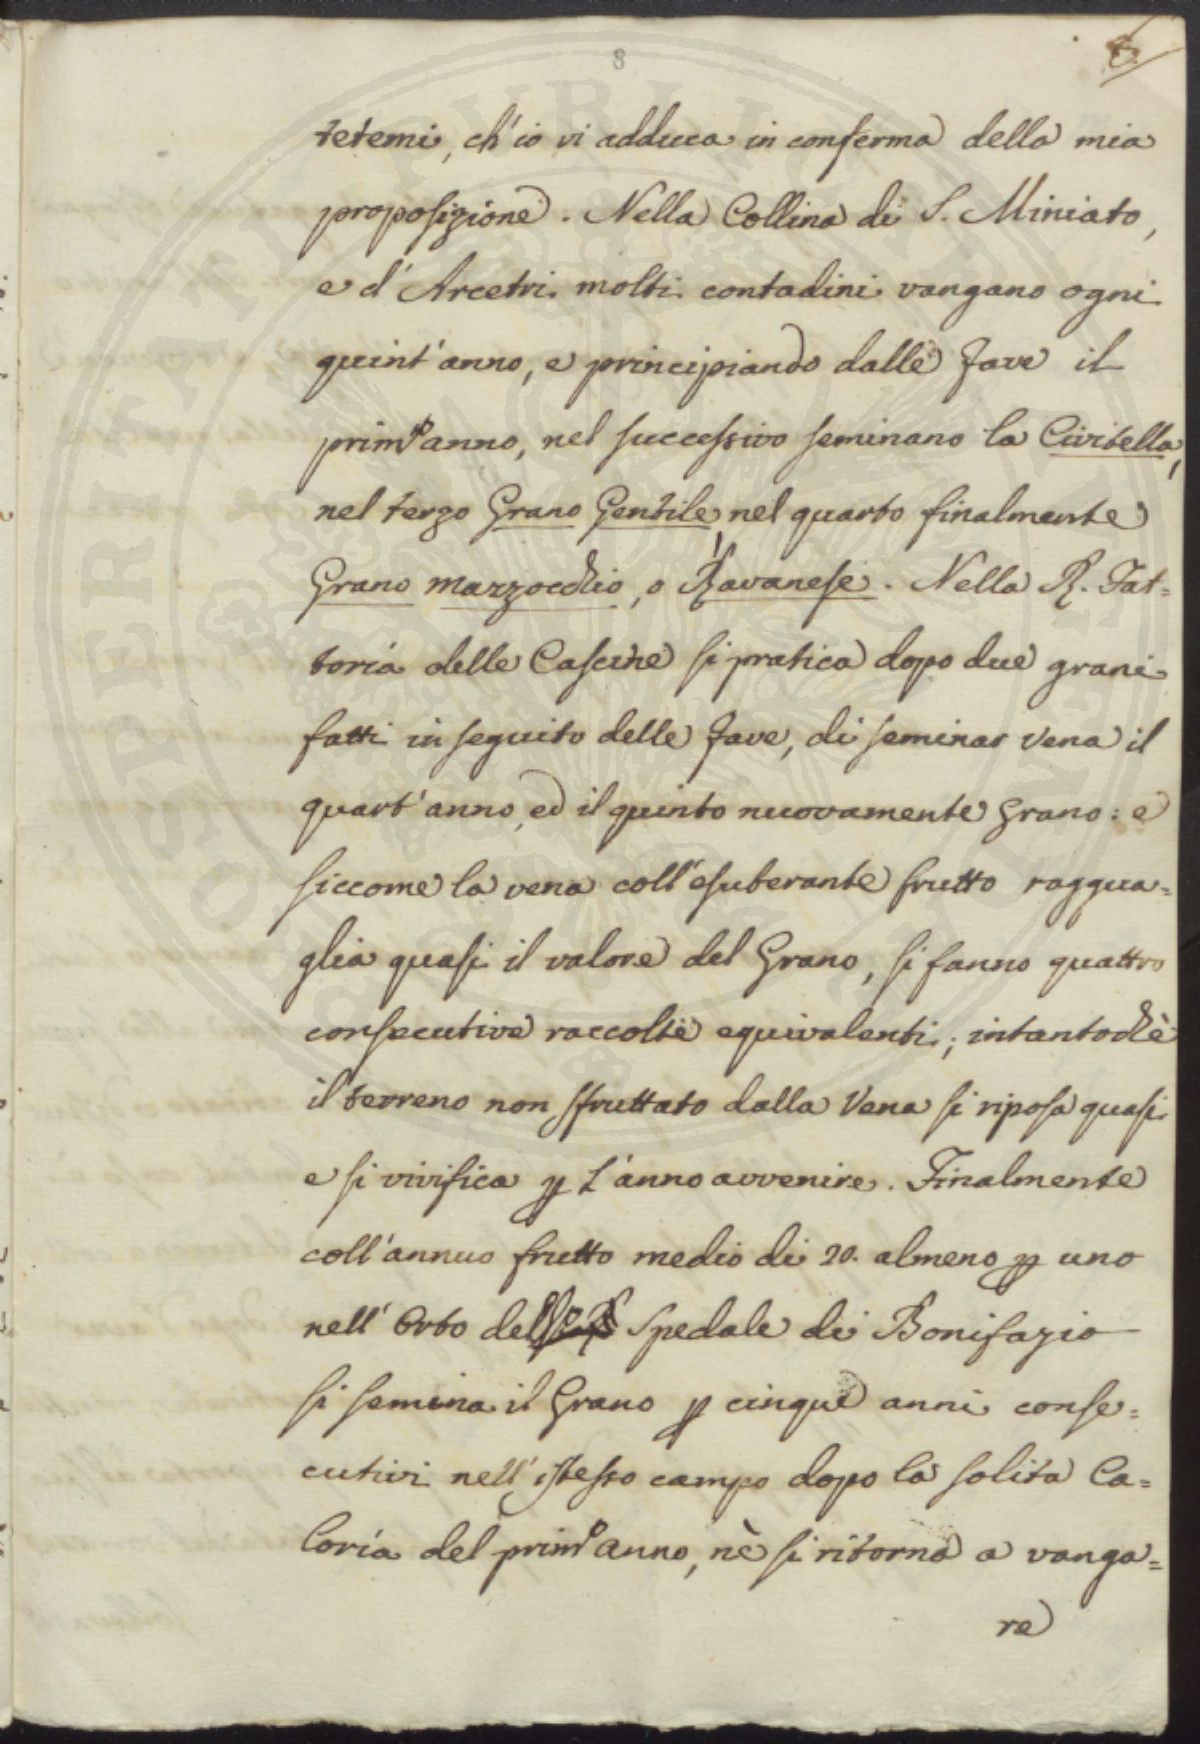 8
8.
tetemi, ch'io vi adduca in conferma della mia
proposizione. Nella Collina di S. Miniato,
e d'Arcetri molti contadini vangano ogni
quint'anno, e principiando dalle fave il
prim'anno, nel successivo seminano la Civitella,
nel terzo Grano Gentile, nel quarto finalmente
Grano mazzocchio, o Ravanese. Nella R. Fat=
toria delle Cascine si pratica dopo due grani
fatti in seguito delle fave, di seminar vena il
quart'anno, ed il quinto nuovamente grano: e
siccome la vena coll'esuberante frutto raggua=
glia quasi il valore del Grano, si fanno quattro
consecutive raccolte equivalenti; intantochè
il terreno non sfruttato dalla Vena si riposa quasi
e si vivifica p l'anno avvenire. Finalmente
coll'annuo frutto medio di 20. almeno p uno
nell'Orto del Spedale di Bonifazio
si semina il Grano p cinque anni conse=
cutivi nell'istesso campo dopo la solita Ca=
loría del prim'anno, nè si ritorna a vanga=
re
PROSPERITATI PUBLICAE